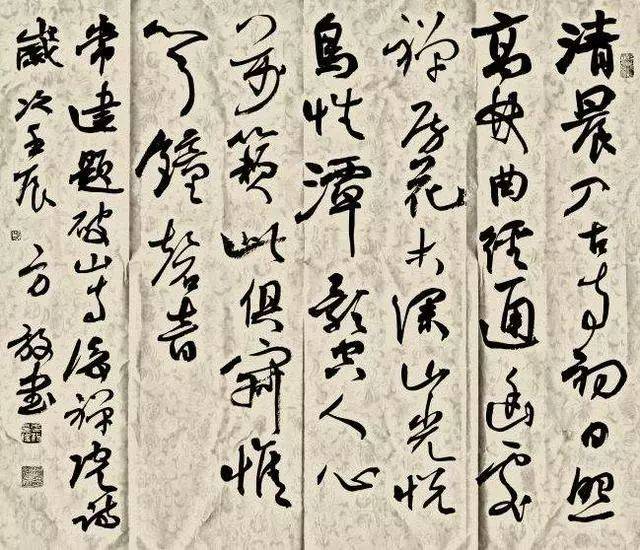 清晨入古寺初日照
高林曲徑通幽處
禪房花木深山光悦
鳥性潭影空人心
萬籟此俱寂惟
聞鐘磬音
常建題破山寺後禪院詩
歲次壬辰 方放書